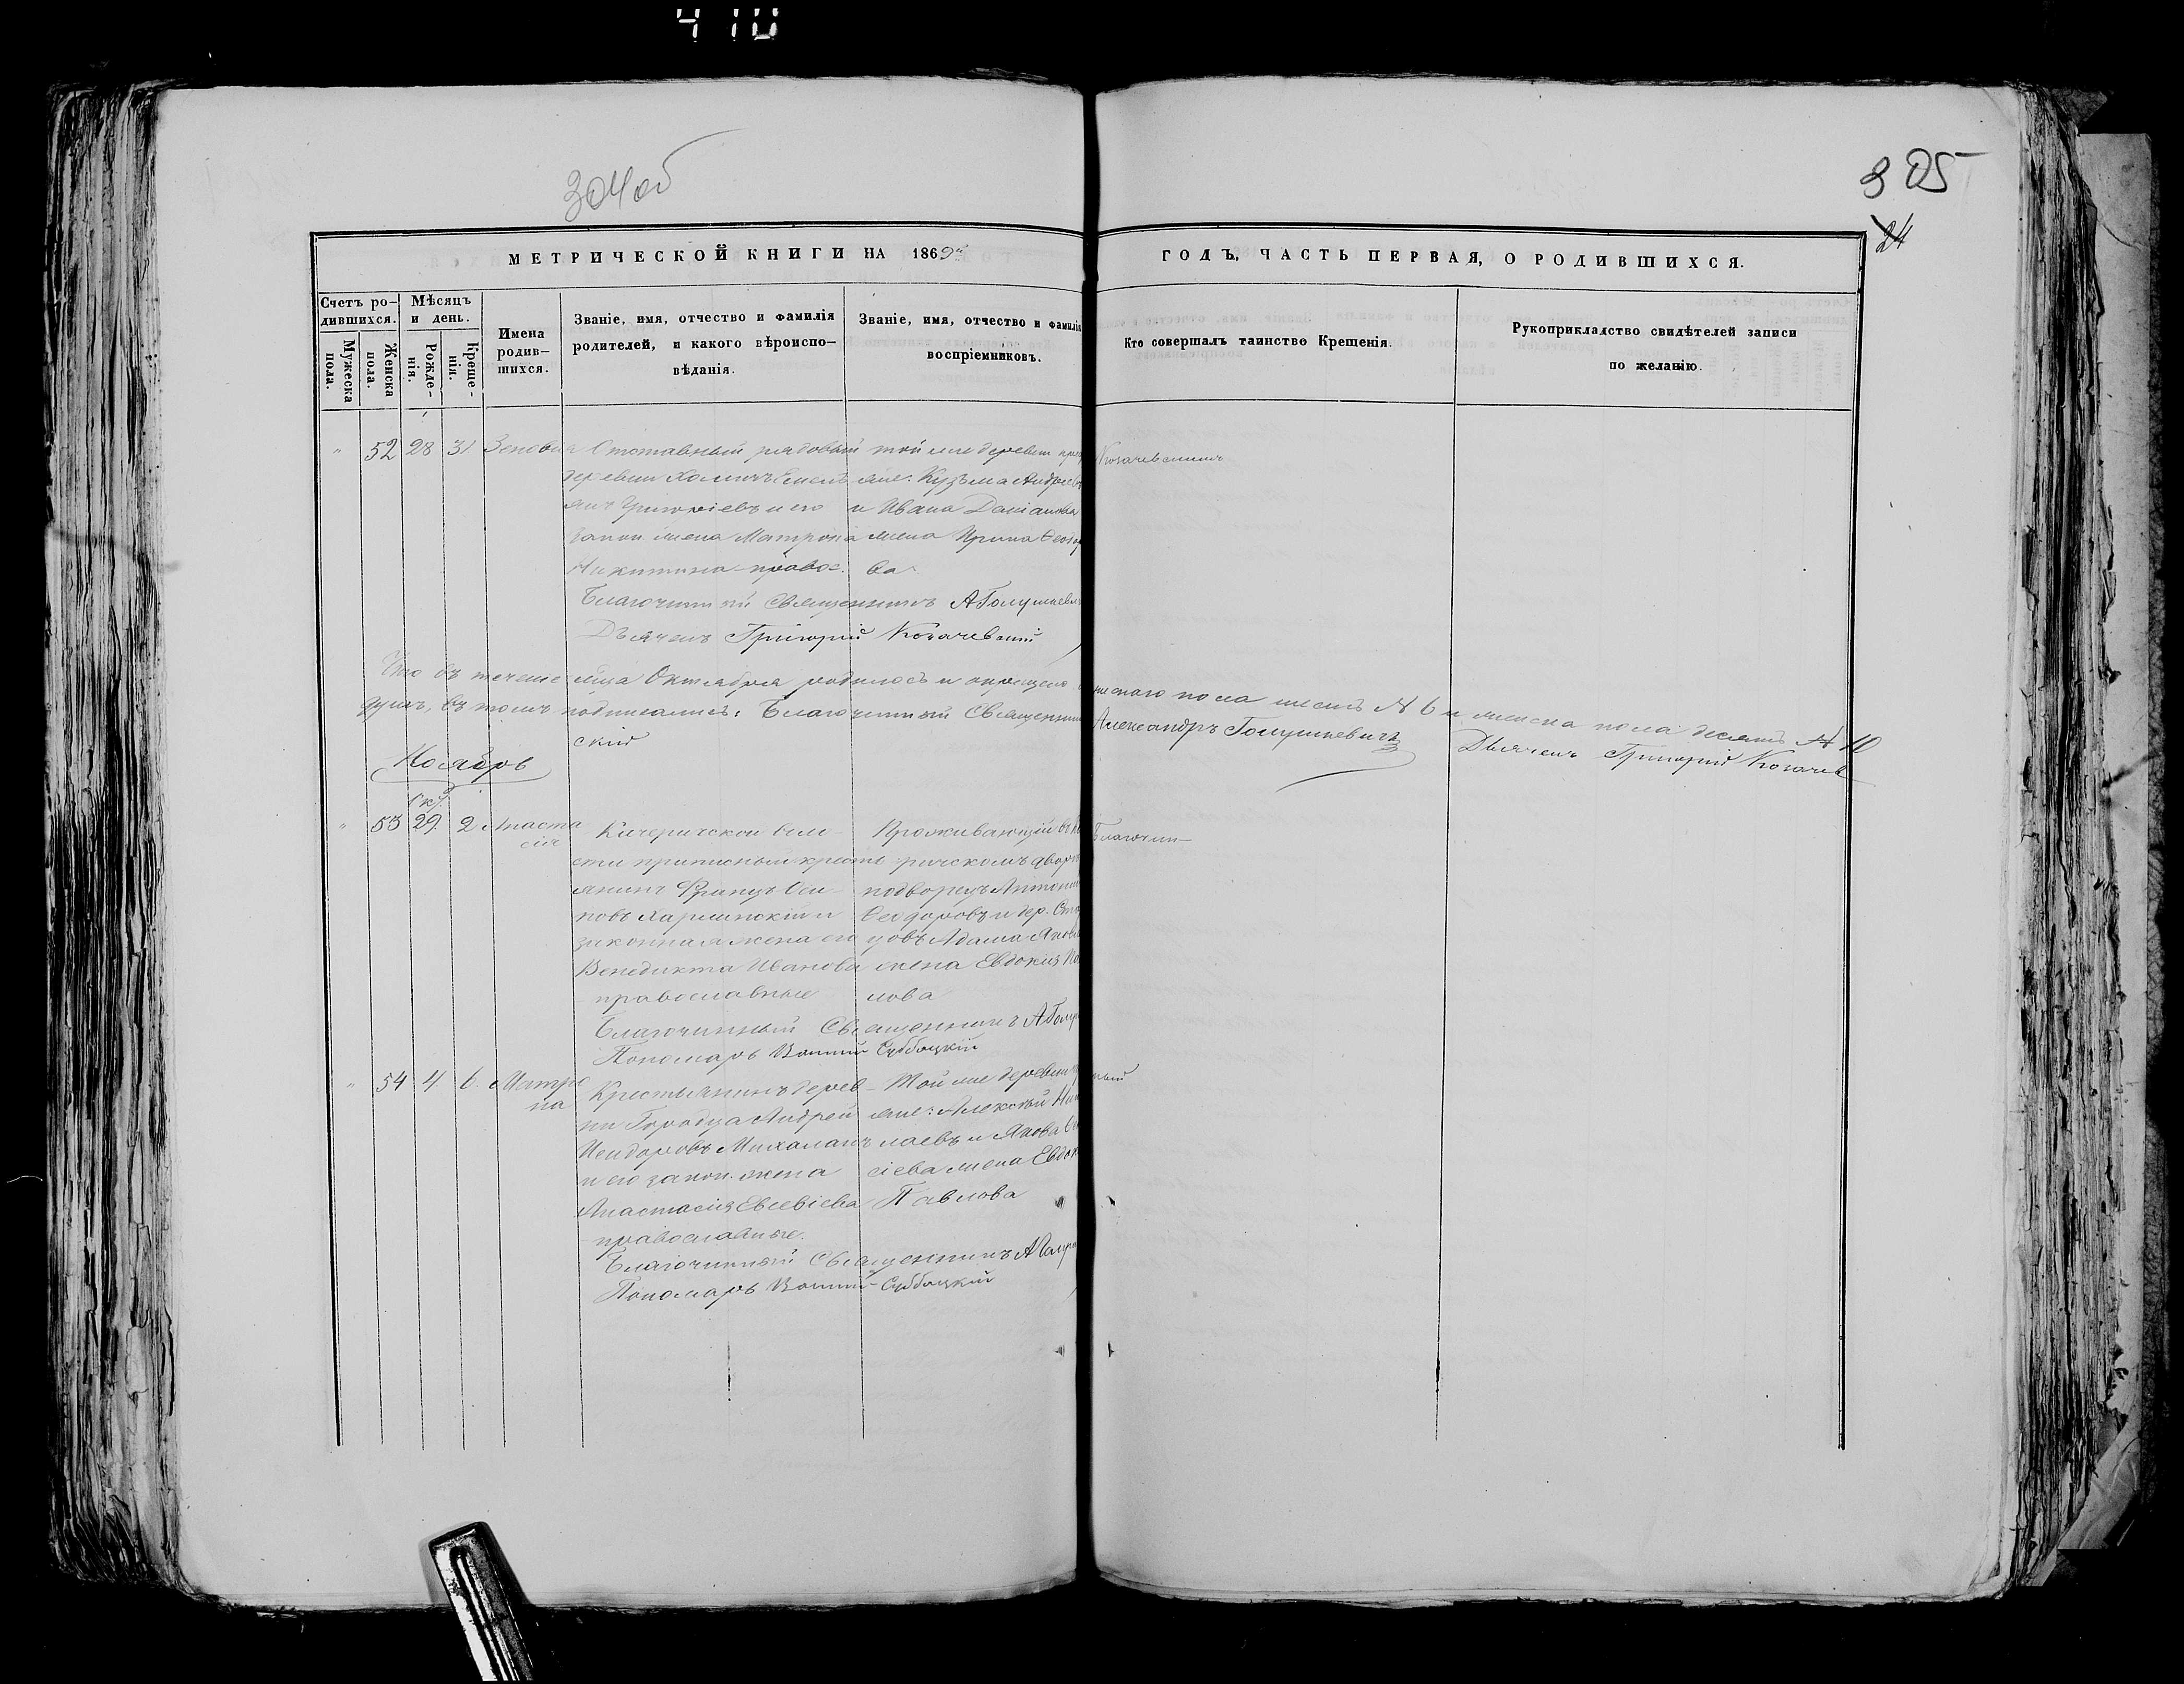 410
304об
305
24
МЕТРИЧЕСКОЙ КНИГИ НА 1869й
ГОДЪ, ЧАСТЬ ПЕРВАЯ, О РОДИВШИХСЯ.
Счетъ ро-
дившихся.
Мужеска
пола.
Женска
пола.
Мѣсяцъ
и день.
Рожде-
нія.
Креще-
нія.
Имена
родив-
шихся.
Званіе, имя, отчество и фамилія
родителей, и какого вѣроиспо-
вѣданія.
Званіе, имя, отчество и фамилія
воспріемниковъ.
Кто совершалъ таинство Крещенія.
Рукоприкладство свидѣтелей записи
по желанію.
" 52 28 31 Зеновія
Отставный рядовый
деревни Холмечъ Емель
янъ Григоріевъ и его
закон. жена Матрона
Никитина правос.
той же деревни
яне: Кузьма Андреев
и Ивана Даніилова
жена Ирина Феодо
ва
Козачевскимъ
Благочинный Священникъ А Голушкевичъ
Дьячекъ Григорій Козачевскій
Что въ теченіе м‑ца Октября родилось и крещено
мужескаго пола шесть № 6 и женска пола десять № 10
душъ, въ томъ подписались: Благочинный Священникъ
Александръ Голушкевичъ Дьячекъ Григорій Козачев
скій
Ноябрь
Окт.
" 53 29 2 Анаста
сія
Кичеричской воло-
сти приписный кресть
янинъ Францъ Оси-
повъ Харлинскій и
законная жена его
Венедикта Иванова
православные
Проживающій въ
ричскомъ
Антоній
Феодоровъ и дер.
цовъ Адама Яковл
жена Евдокія Пав
лова
Благочин-
Благочинный Священникъ А Голуш
Пономарь Субботскій
" 54 4 6 Матро
на
Крестьянинъ дерев-
ни Городца Андрей
Исидоровъ
и его закон. жена
Анастасія Евсевіева
православные.
Той же деревни
яне: Алексѣй Ник
лаевъ и Якова
сіева жена Евдок
Павлова
ный
Благочинный Священникъ А Голуш
Пономарь Субботскій